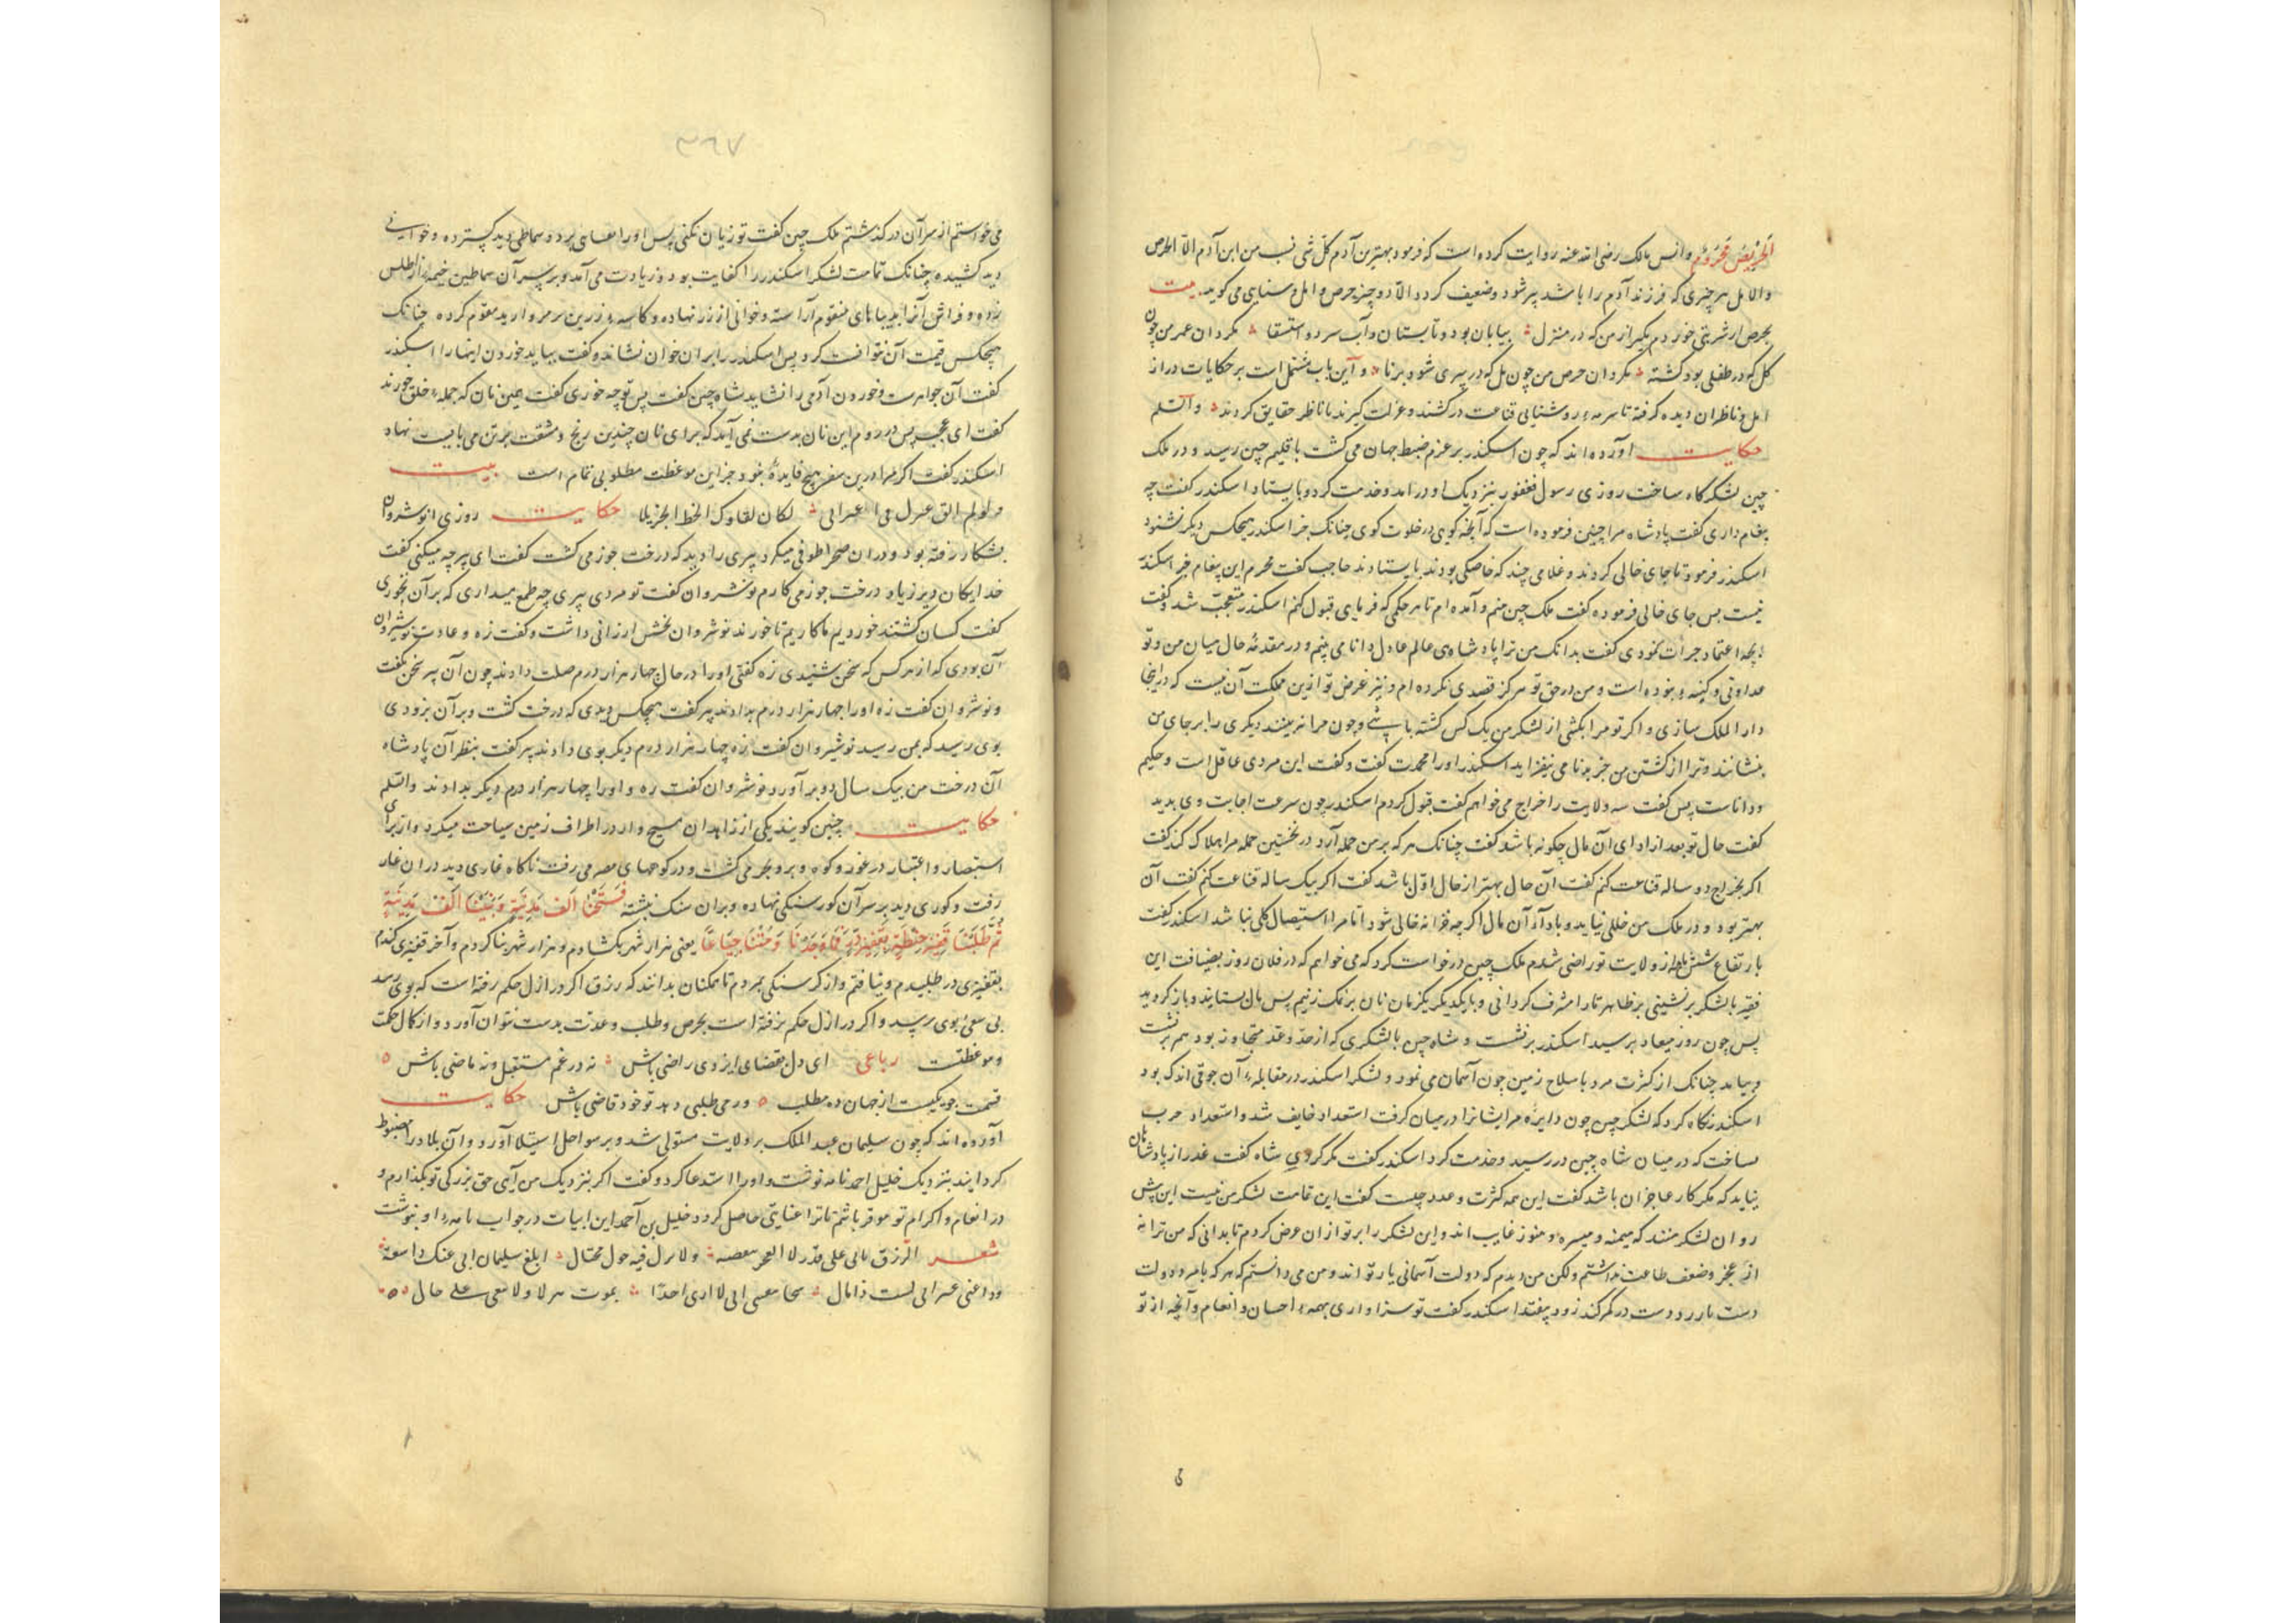 اَلحَرِیصُ مَحرُومٌ وانس مالک رضی الله عنه روایت کرده است که فرمود بهترین آدم کل شی نسب من ابن آدم الا الحرص
والامل هر چیزی که فرزند آدم را باشد پیر شود و ضعیف کردد الا دو چیز حرص و امل و سنایی می کوید بیت
بحرص ار شربتی خوردم مکیر از من که در منزل بیابان بود و تابستان و آب سرد و استسقا مکردان عمر من چون
کل که در طفلی بود کشته مکردان حرص من چون مل که در پیری شود برنا و آین باب مشتمل است بر حکایات دراز
امل و ناظران دیده کرفته تا سرمهء روشنایی قناعت در کشند و عزلت کیرند تا ناظر حقایق کردند والسلم
حکایت آورده اند که چون اسکندر بر عزم ضبط جهان می کشت باقلیم چین رسید و در ملک
چین لشکرکاه ساخت روزی رسول فغفور بنزدیک او در امد و خدمت کرد و بایستاد اسکندر کفت چه
پیغام داری کفت پادشاه مرا چنین فرموده است که آنچه کویی در خلوت کوی چنانک جز اسکندر هیچکس دیکر نشنود
اسکندر فرمود تا جای خالی کردند و غلامی چند که خاصکی بودند بایستادند حاجب کفت محرم این پیغام جز اسکندر
نیست پس جای خالی فرموده کفت ملک چین منم و آمده ام تا هر حکمی که فرمایی قبول کنم اسکندر متعجب شد و کفت
بچه اعتماد جرات نمودی کفت بدانک من ترا پادشاهی عالم عادل دانا می بینم و در مقدمهٔ حال میان من و تو
عداوتی و کینه ء نبوده است و من در حق تو هرکز قصدی نکرده ام و نیز غرض تو ازین مملکت آن نیست که در اینجا
دار الملک سازی و اکر تو مرا بکشی از لشکر من یک کس کشته باشی و چون مرا نه بینند دیکری را بر جای من
بنشانند و ترا از کشتن من جز بدنامی نیفزاید اسکندر اورا محمدت کفت و کفت این مردی عاقل است و حکیم
و داناست پس کفت سه ولایت را خراج می خواهم کفت قبول کردم اسکندر چون سرعت اجابت وی بدید
کفت حال تو بعد از ادای آن مال چکونه باشد کفت چنانک هر که بر من حمله آرد در نخستین حمله مرا هلاک کند کفت
اکر بخراج دو ساله قناعت کنم کفت آن حال بهتر از حال اول باشد کفت اکر بیک ساله قناعت کنم کفت آن
بهتر بود و در ملک من خللی نیاید و باد آن مال اکر چه خزانه خالی شود اما مرا استیصال کلی نباشد اسکندر کفت
بارتفاع شش ماهه از ولایت تو راضی شدم ملک چین درخواست کرد که می خواهم که در فلان روز بضیافت این
فقیر با لشکر برنشینی بظاهر تا را مشرف کردانی و با یکدیکر یکزمان نان بر نمک زنیم پس مال بستانید و باز کردید
پس چون روز میعاد برسید اسکندر برنشست و شاه چین با لشکری که از حد و عد متجاوز بود هم برنشست
و بیامد چنانک از کثرت مرد با سلاح زمین چون آسمان می نمود و لشکر اسکندر در مقابلهء آن جوقی اندک بود
اسکندر نکاه کرد که لشکر چین چون دایره مر ایشانرا در میان کرفت استعداد خایف شد و استعداد حرب
بساخت که در میان شاه چین در رسید و خدمت کرد اسکندر کفت مکر کردی شاه کفت غدر از پادشاهان
نیاید که مکر کار عاجزان باشد کفت این همه کثرت و عدد چیست کفت این تمامت لشکر من نیست این پیش
روان لشکر منند که میمنه و میسره و هنوز غایب اند و این لشکر را بر تو از ان عرض کردم تا بدانی که من ترا نه
از عجز و ضعف طاعت داشتم ولکن من دیدم که دولت آسمانی یار تو اند و من می دانستم که هر که با مرد دولت
دست در کمر کند زود بیفتد اسکندر کفت تو سزاواری بهمهء احسان و انعام و آنچه از تو
می خواستم از سر آن درکذشتم ملک چین کفت تو زیان نکنی پس اورا برد و سماطی دید کسترده و خوانی
دید کشیده چنانک تمامت لشکر اسکندر را کفایت بود و زیادت می آمد و بر سر آن سماطین خیمهء از اطلس
زده و فراش آنرا بدیباهای منقوم آراسته و خوانی از زر نهاده و کاسهء زرین مروارید مقوم کرده چنانک
هیچکس قیمت آن نتوانست کرد پس اسکندر را بر ان خوان نشاند و کفت بباید خوردن اینهارا اسکندر
کفت آن جواهرست و خوردن آدمی را نشاید شاه چین کفت پس تو چه خوری کفت همین نان که جملهء خلق خورند
کفت ای عجب پس در روم این نان بدست نمی آید که برای نان چندین رنج و مشقت بر تن می بایست نهاد
اسکندر کفت اکر مرا درین سفر هیچ فایدهٔ نبود جز این موعظت مطلوبی تمام است بیت
ولو لم الق حکایت روزی انوشروان
بشکار رفته بود و دران صحرا طوفی میکرد پیری را دید که درخت جوز می کشت کفت ای پیر چه میکنی کفت
خدایکان دیر زیاد درخت جوز می کارم نوشروان کفت تو مردی پیری چه طمع میداری که بر آن بخوری
کفت کسان کشتند خوردیم ما کاریم تا خورند نوشروان بخشش ارزانی داشت و کفت زه و عادت نوشیروان
آن بودی که از هر کس که سخن شنیدی زه کفتی اورا در حال چهار هزار درم صلت دادند چون آن پیر سخن بکفت
و نوشروان کفت زه اورا چهار هزار درم بدادند پیر کفت هیچکس دیدی که درخت کشت و بر آن بزودی
بوی رسید که بمن رسید نوشیروان کفت زه چهار هزار درم دیکر بوی دادند پیر کفت بنظر آن پادشاه
آن درخت من بیک سال دو بر آورد نوشروان کفت زه و اورا چهار هزار درم دیکر بدادند والسلم
حکایت چنین کویند یکی از زاهدان مسیح وار در اطراف زمین سیاحت میکرد و از برای
استبصار و اعتبار در غور و کوه و بر و بحر می کشت و در کوههای مصر می رفت ناکاه غاری دید دران غار
رفت و کوری دید بر سر آن کور سنکی نهاده و بران سنک نبشته فَتَحْنَا اَلْفَ مَدِینَةٍ وَبَنَیْنَا اَلْفَ مَدِینَةٍ
ثُمَّ طَلَبْنَا قَفِیزَ حِنْطَةٍ بِقَفِیزِ دُرٍّ فَمَا وَجَدْنَا وَمُتْنَا جِیَاعًا یعنی هزار شهر بکشادم و هزار شهر بنا کردم و آخر قفیزی کندم
بقفیزی در طلبیدم و نیافتم و از کرسنکی بمردم تا همکنان بدانند که رزق اکر در ازل حکم رفته است که بوی رسد
بی سعی بوی رسید و اکر در ازل حکم نرفته است بحرص و طلب و عدت بدست نتوان آورد و از کمال حکمت
و موعظتست رباعی ای دل بقضای ایزدی راضی باش نه در غم مستقبل و نه ماضی باش
قسمت چو یکیست از جهان ده مطلب ور می طلبی دهد تو خود قاضی باش حکایت
آورده اند که چون سلیمان عبد الملک بر ولایت مستولی شد و بر سواحل استیلا آورد و آن بلاد را مضبوط
کردانید بنزدیک خلیل احمد نامه نوشت و اورا استدعا کرد و کفت اکر بنزدیک من آیی حق بزرکی تو بکذارم و
در انعام و اکرام تو موفر باشم تا ترا غنایتی حاصل کردد خلیل بن آحمد این ابیات در جواب نامهء او بنوشت
شعر الرزق یاتی علی قدر لا العجز ینقصه ولا یزیدک فیه حول محتال ابلغ سلیمان انی عنک فی سعة
وفی غنی غیر انی لست ذا مال سخا بنفسی انی لا اری احدا یموت هزلا ولا یبقی علی حال